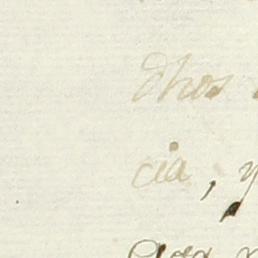 dhos
cia, y